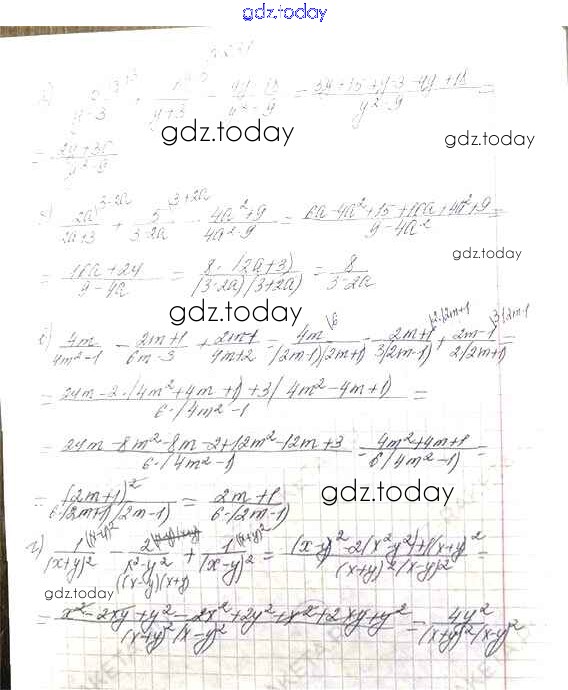 gdz.today
gdz.today
gdz.today
б) 2a/(2a+3) + 5/(3-2a) - (4a²+9)/(4a²-9) = (6a-4a²+15+10a+4a²+9)/(9-4a²) =
gdz.today
= (16a+24)/(9-4a) = 8·(2a+3)/((3-2a)(3+2a)) = 8/(3-2a)
gdz.today
в) 4m/(4m²-1) - (2m+1)/(6m-3) + (2m-1)/(4m+2) = 4m\6/((2m-1)(2m+1)) - (2m+1)/(3(2m-1)) + (2m-1)/(2(2m+1)) =
= (24m-2·(4m²+4m+1)+3(4m²-4m+1))/(6·(4m²-1)) =
= (24m-8m²-8m-2+12m²-12m+3)/(6·(4m²-1)) = (4m²+4m+1)/(6(4m²-1)) =
= (2m+1)²/(6·(2m+1)(2m-1)) = (2m+1)/(6·(2m-1))
gdz.today
г) 1/(x+y)² - 2/(x²-y²) + 1/(x-y)² = ((x-y)²-2(x²-y²)+1(x+y)²)/((x+y)²(x-y)²) =
gdz.today
= (x²-2xy+y²-2x²+2y²+x²+2xy+y²)/((x+y)²(x-y)²) = 4y²/((x+y)²(x-y)²)